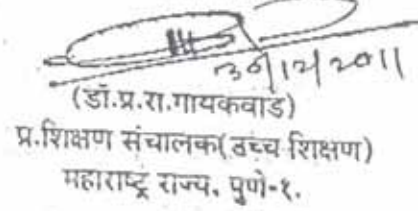 30/12/2011
(डॉ.प्र.रा.गायकवाड)
प्र.शिक्षण संचालक(उच्च शिक्षण)
महाराष्ट्र राज्य, पुणे-१.